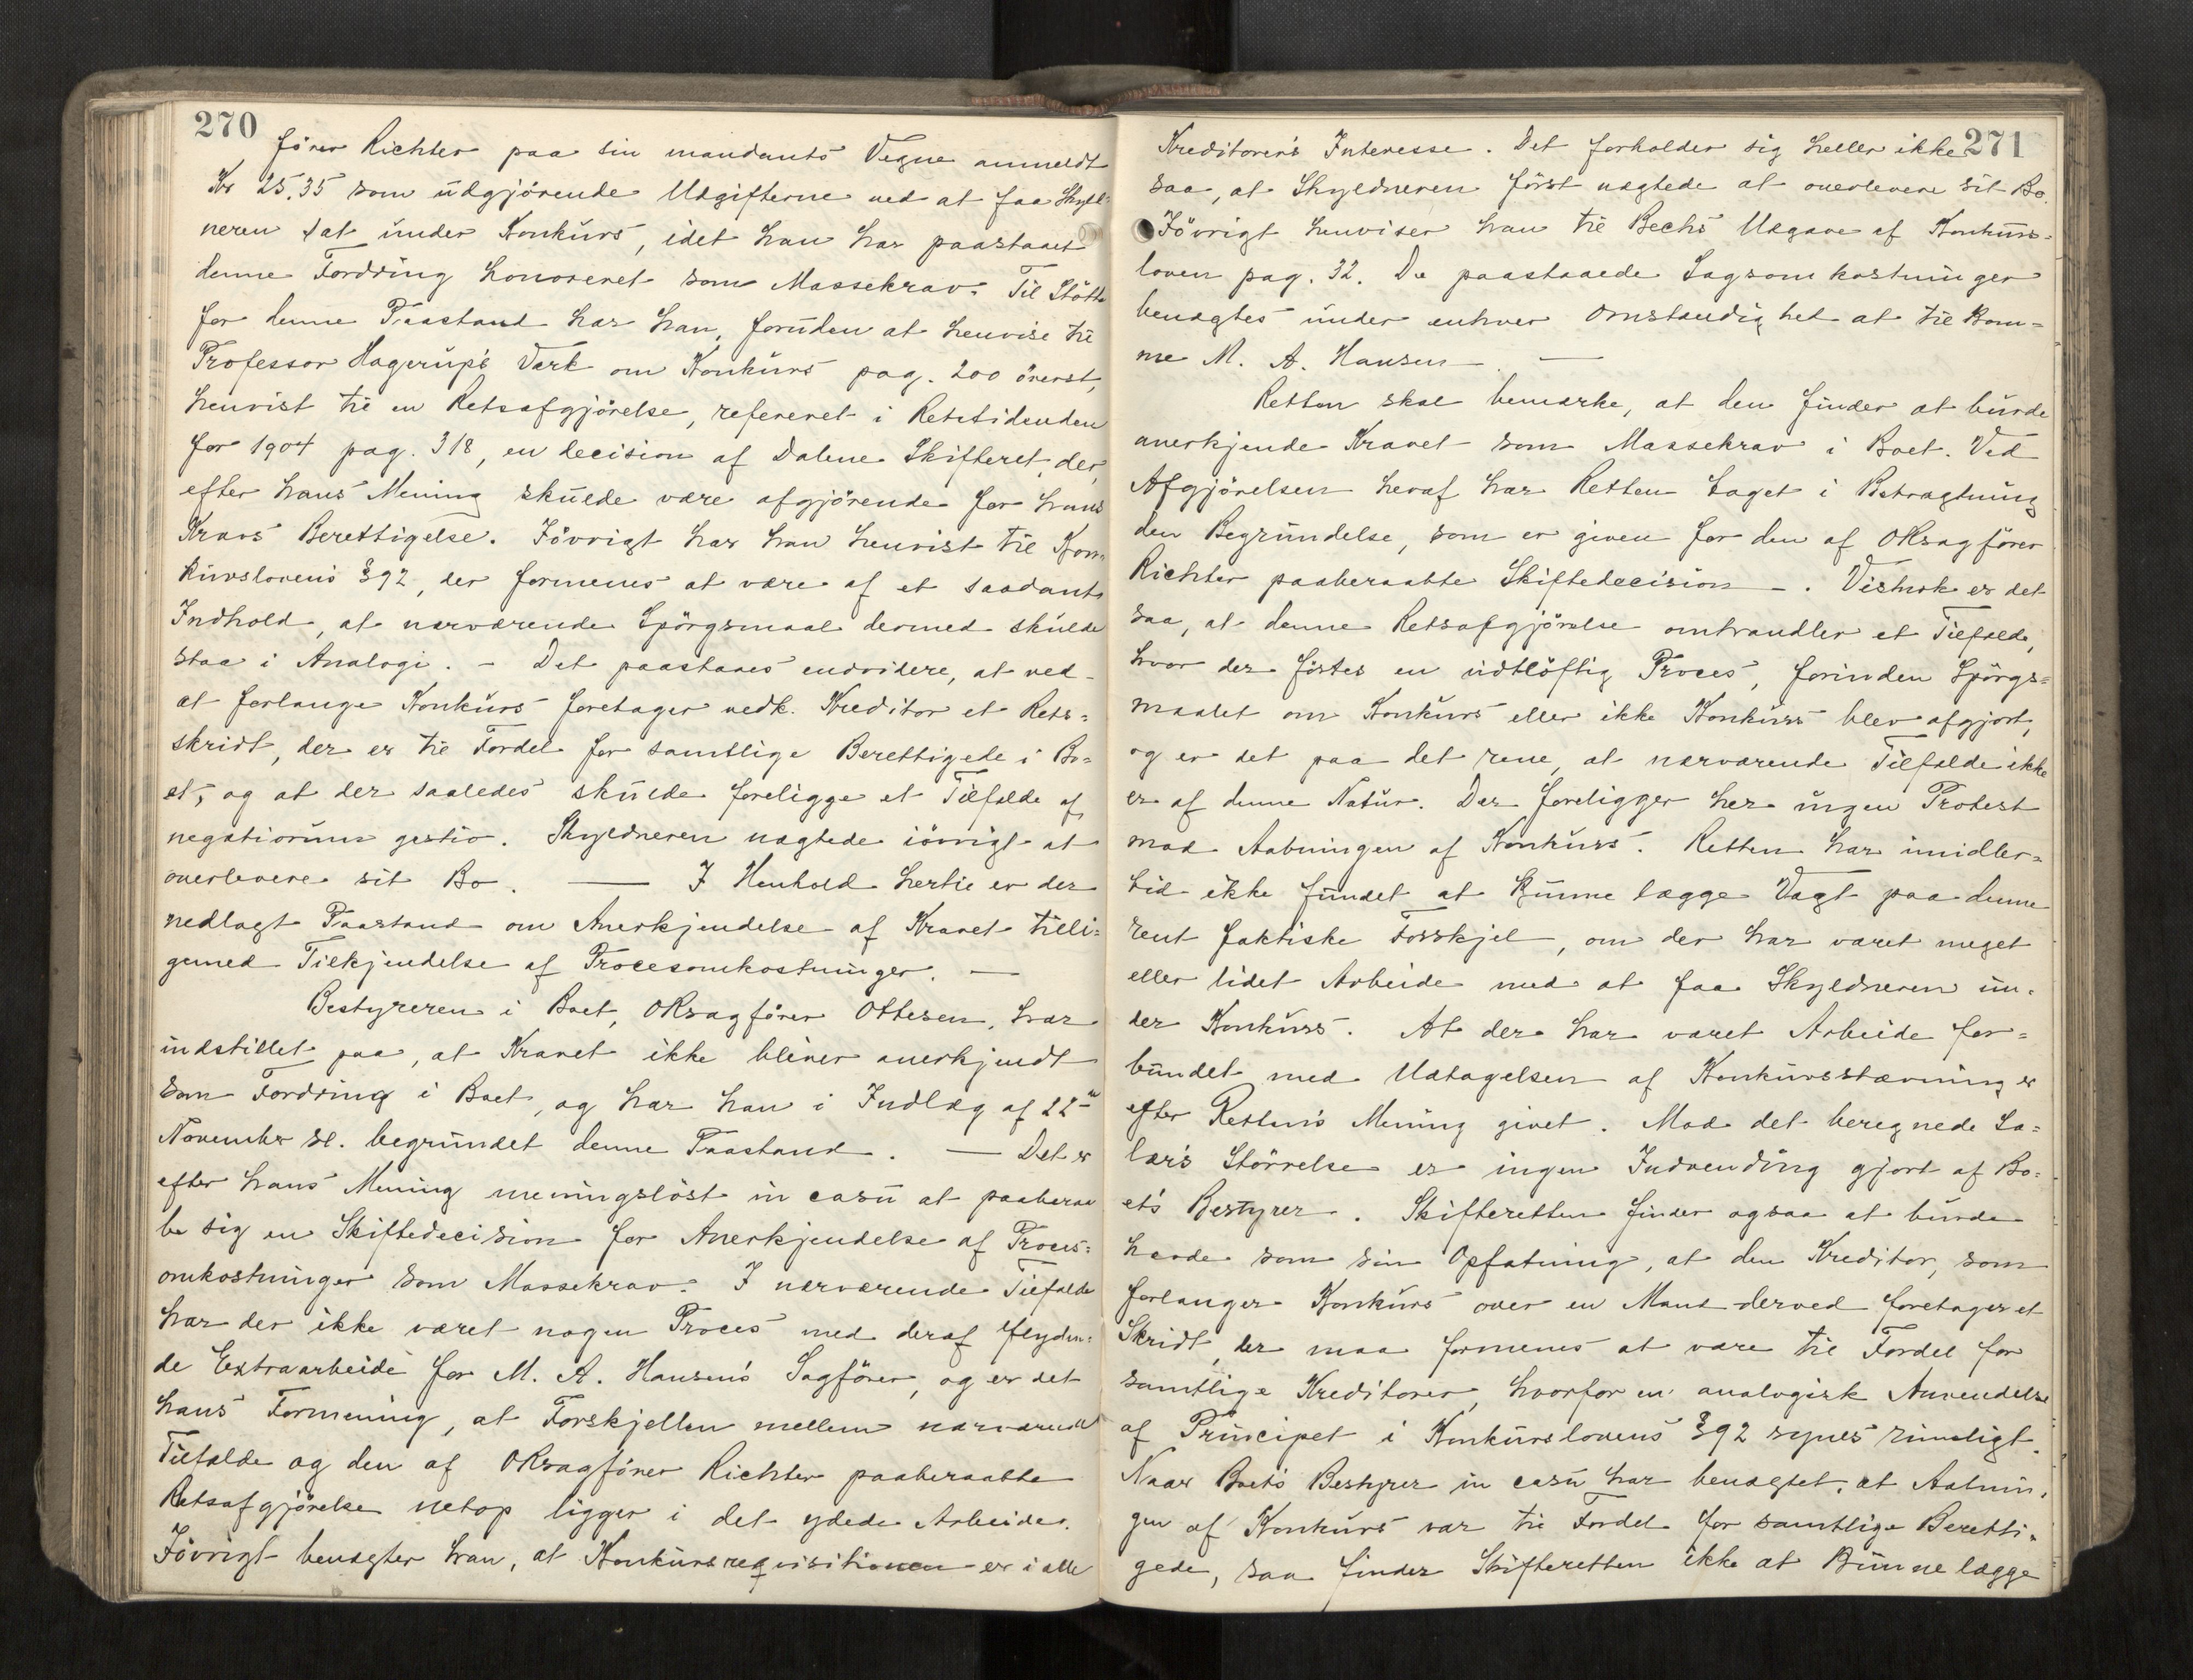 270
fører Richter paa sin mandants Vegne anmeldt
Kr 25.35 som udgjørende Udgifterne ved at faa Skyld-
neren sat under Konkurs, idet han har paastaaet
denne Fordring honoreret som Massekrav. Til Støtte
for denne Paastand har han, foruden at henvise til
Professor Hagerup's Værk om Konkurs pag. 200 øverst,
henvist til en Retsafgjørelse, refereret i Retstidenden
for 1904 pag. 318, en decision af Dalene Skifteret, der,
efter hans Mening skulde være afgjørende for hans
Kravs Berettigelse. Iøvrigt har han henvist til Kon-
kurslovens §92, der formenes at være af et saadant
Indhold, at nærværende Spørgsmaal dermed skulde
staa i Analogi. - Det paastaaes endvidere, at ved
at forlange Konkurs foretager vedk. Kreditor et Rets-
skridt, der er til Fordel for samtlige Berettigede i Bo-
et, og at der saaledes skulde foreligge et Tilfælde af
negotiorum gestio. Skyldneren nægtede iøvrigt at
overlevere sit Bo. — I Henhold hertil er der
nedlagt Paastand om Anerkjendelse af Kravet tilli-
gemed Tilkjendelse af Procesomkostninger. —
Bestyreren i Boet, ORsagfører Ottesen, har
indstillet paa, at Kravet ikke bliver anerkjendt
som Fordring i Boet, og har han i Indlæg af 22de
November sl. begrundet denne Paastand. — Det er
efter hans Mening meningsløst in casu at paaberaa
be sig en Skiftedecision for Anerkjendelse af Proces-
omkostninger som Massekrav. I nærværende Tilfælde
har der ikke været nogen Proces med deraf flyden-
de Extraarbeide for M. A. Hansen's Sagfører, og er det
hans Formening, at Forskjellen mellem nærværende
Tilfælde og den af ORsagfører Richter paaberaabte
Retsafgjørelse netop ligger i det ydede Arbeide.
Iøvrigt benægter han, at Konkursreqvisitionen er i alle
271
Kreditorers Interesse. Det forholder sig heller ikke
saa, at Skyldneren først nægtede at overlevere sit Bo.
Iøvrigt henviser han til Bechs Udgave af Konkurs-
loven pag. 32. De paastaaede Sagsomkostninger
benægtes under enhver Omstændighet at tilkom-
me M. A. Hansen. —
Retten skal bemærke, at den finder at burde
anerkjende Kravet som Massekrav i Boet. Ved
Afgjørelsen heraf har Retten taget i Betragtning
den Begrundelse, som er given for den af ORsagfører
Richter paaberaabte Skiftedecision -. Vistnok er det
saa, at denne Retsafgjørelse omhandler et Tilfælde,
hvor der førtes en vidtløftig Proces, forinden Spørgs-
maalet om Konkurs eller ikke Konkurs blev afgjort,
og er det paa det rene, at nærværende Tilfælde ikke
er af denne Natur. Der foreligger her ingen Protest
mod Aabningen af Konkurs. Retten har imidler-
tid ikke fundet at kunne lægge Vægt paa denne
rent faktiske Forskjel, om der har været meget
eller lidet Arbeide med at faa Skyldneren un-
der Konkurs. At der har været Arbeide for-
bundet med Udtagelsen af Konkursstævning er
efter Rettens Mening givet. Mod det beregnede Sa-
lærs Størrelse er ingen Indvending gjort af Bo-
ets Bestyrer. Skifteretten finder ogsaa at burde
hævde som sin Opfatning, at den Kreditor, som
forlanger Konkurs over en Mand derved foretager et
Skridt, der maa formenes at være til Fordel for
samtlige Kreditorer, hvorfor en analogisk Anvendelse
af Principet i Konkurslovens §92 synes rimeligt.
Naar Boets Bestyrer in casu har benægtet, at Aabnin-
gen af Konkurs var til Fordel for samtlige Beretti-
gede, saa finder Skifteretten ikke at kunne lægge